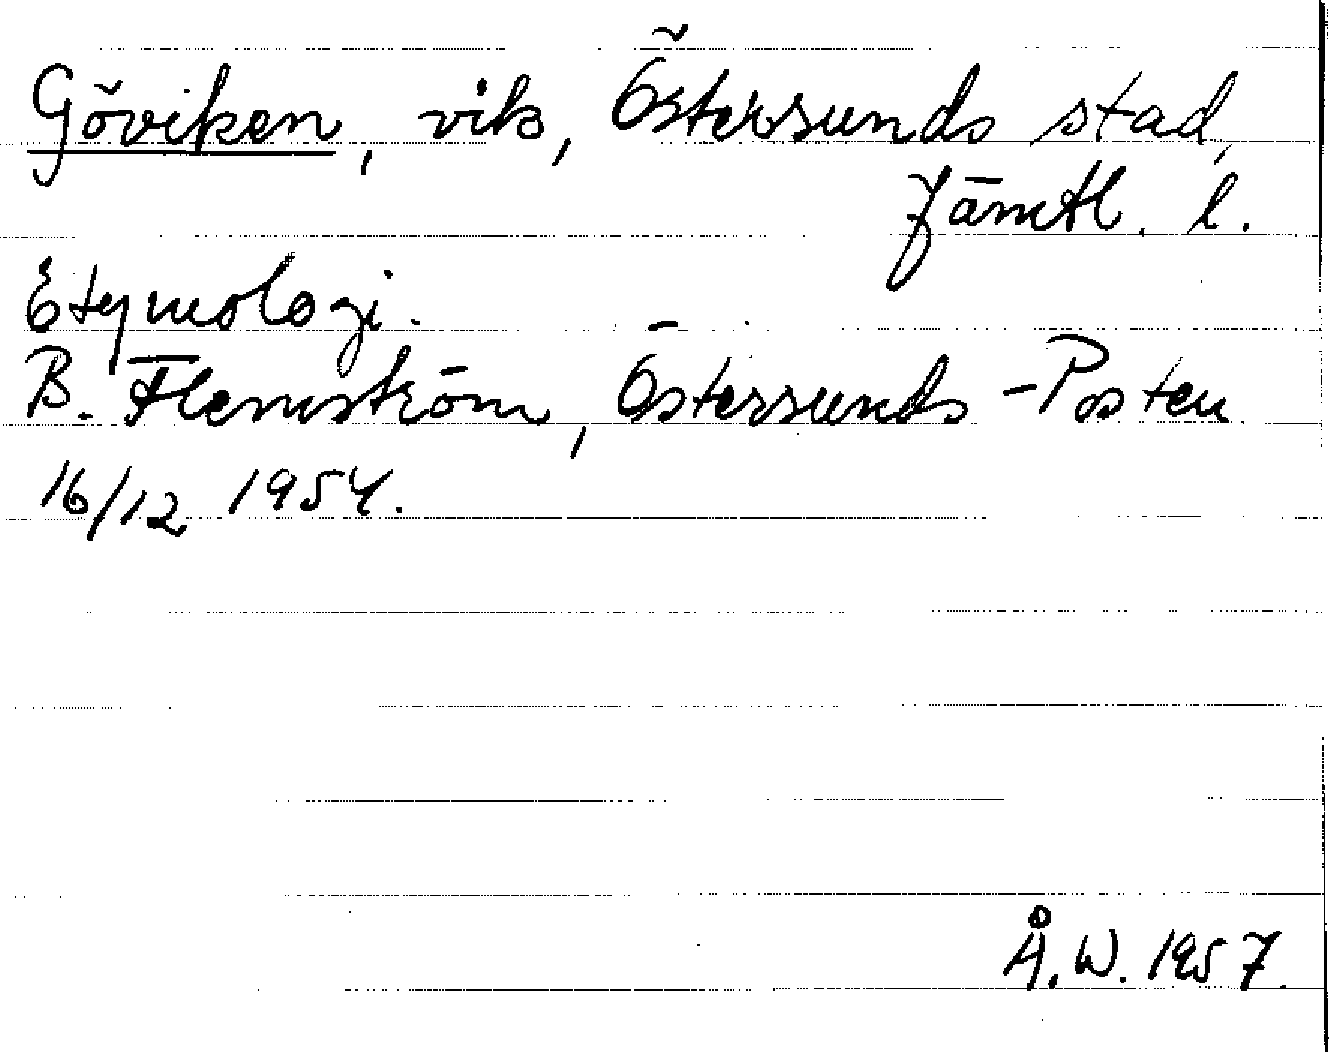 Göviken, vik, Östersunds stad,
Jämtl. l.
Etymologi.
B. Flemström, Östersunds-Posten
16/12 1954.
Å. W. 1957.